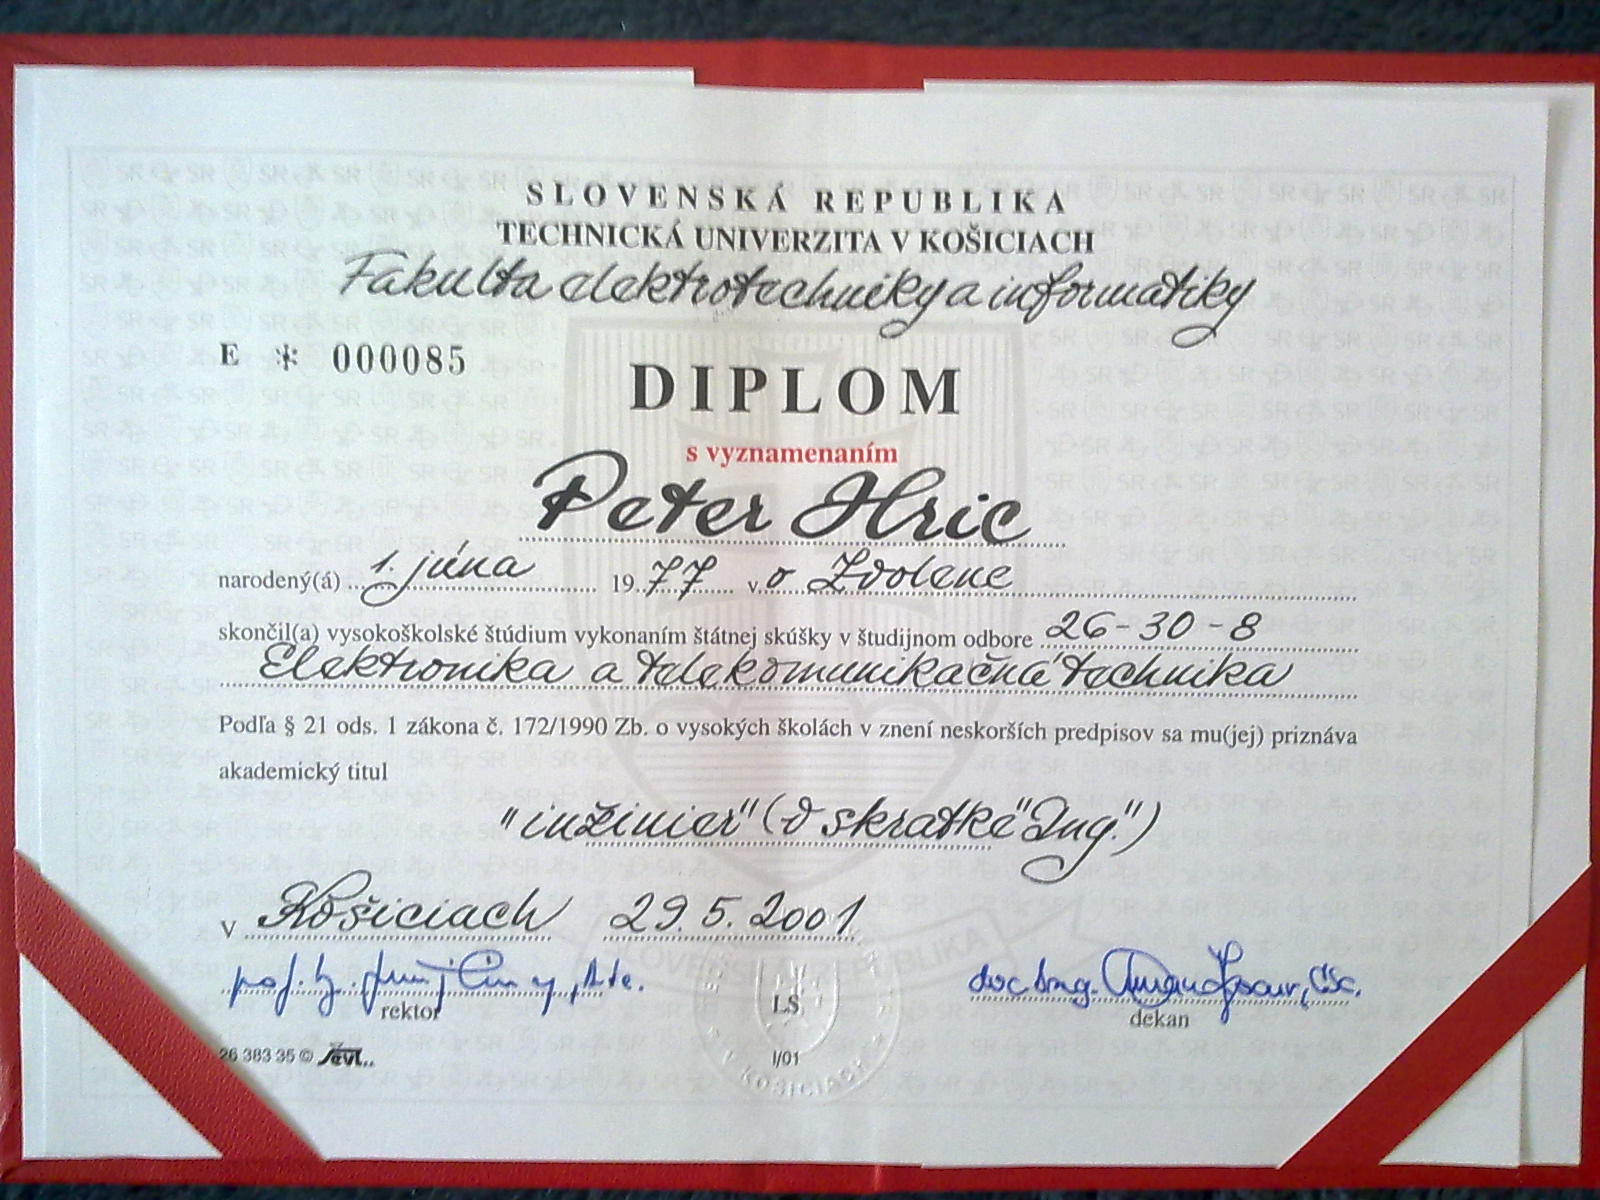 SLOVENSKÁ REPUBLIKA
TECHNICKÁ UNIVERZITA V KOŠICIACH
Fakulta elektrotechniky a informatiky
E * 000085
DIPLOM
s vyznamenaním
Peter Hric
narodený(á) 1. júna 1977 v o Zvolene
skončil(a) vysokoškolské štúdium vykonaním štátnej skúšky v študijnom odbore 26-30-8
Elektronika a telekomunikačná technika
Podľa § 21 ods. 1 zákona č. 172/1990 Zb. o vysokých školách v znení neskorších predpisov sa mu(jej) priznáva
akademický titul
"inžinier" (v skratke "Ing.")
v Košiciach 29.5.2001
prof. Ing. doc. Ing. CSc.
rektor LS dekan
26 383 35 © Ševt.. I/01
SLOVENSKÁ REPUBLIKA
KOŠICIACH